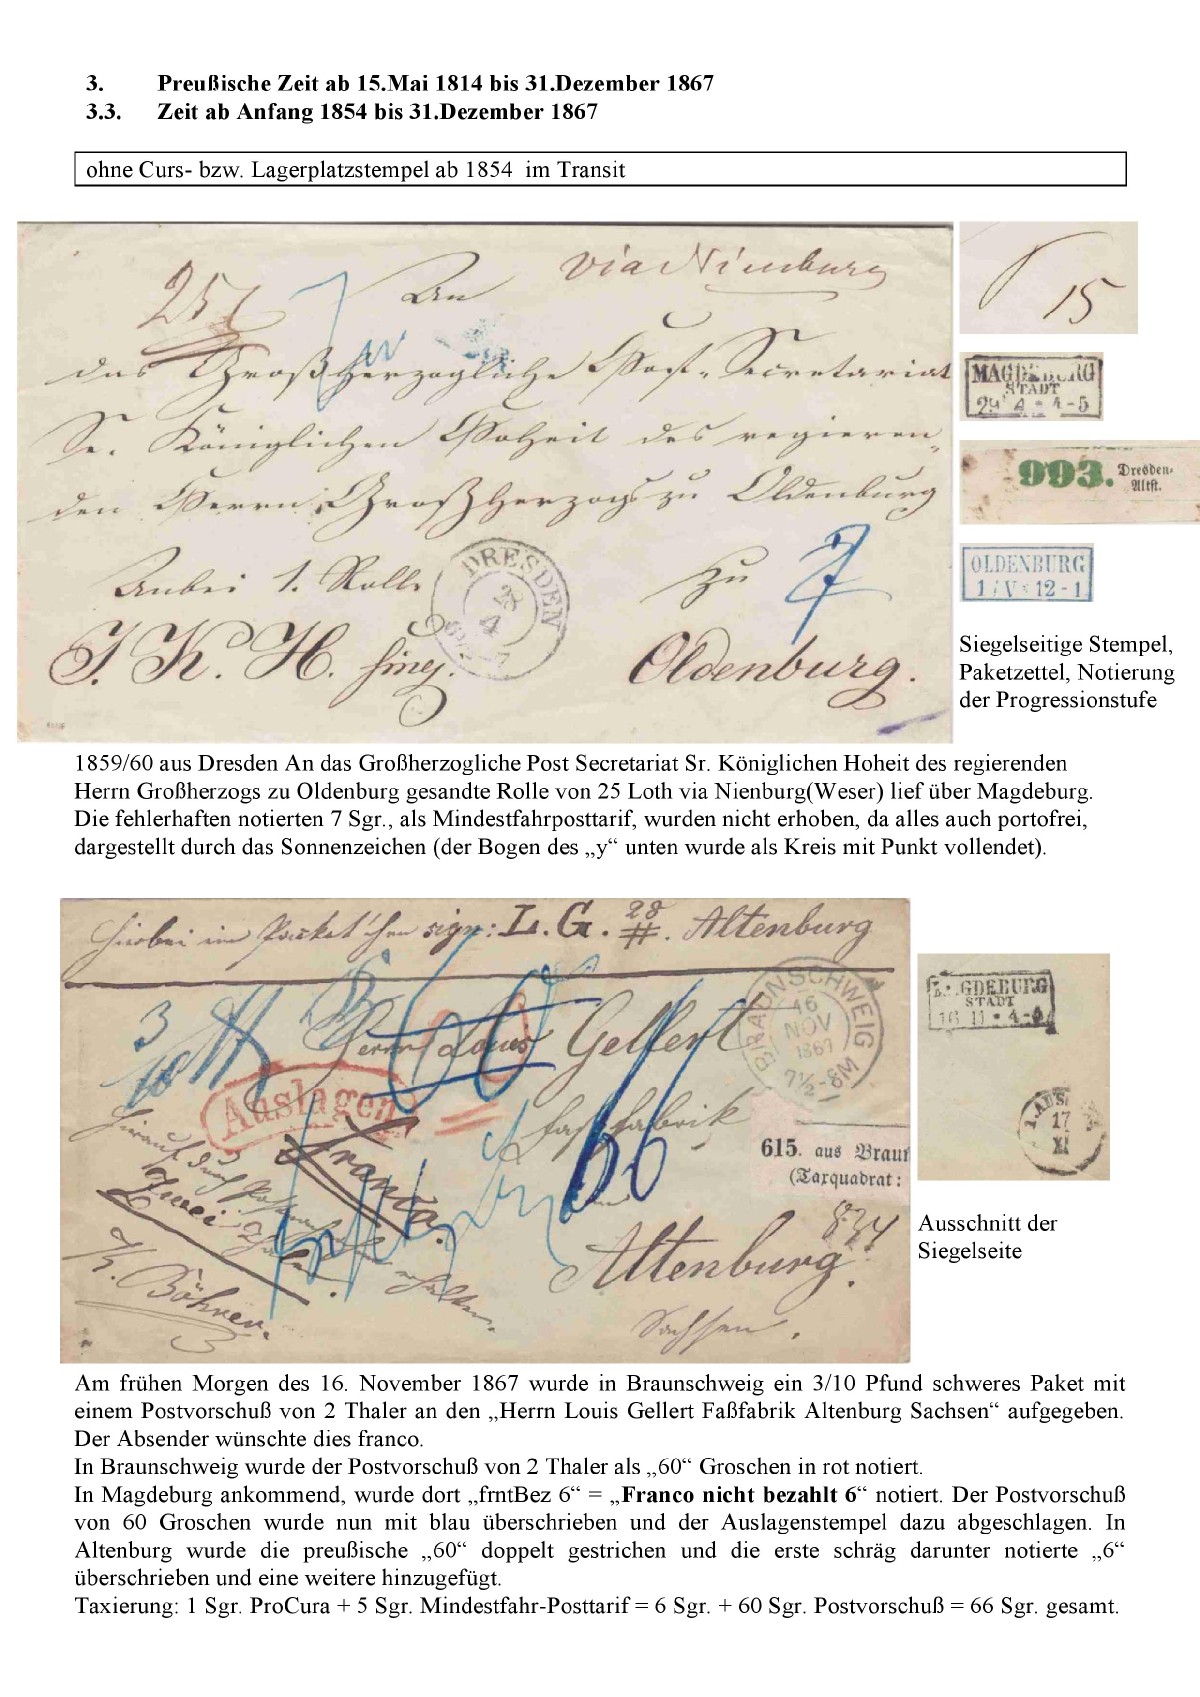 3. Preußische Zeit ab 15.Mai 1814 bis 31.Dezember 1867
3.3. Zeit ab Anfang 1854 bis 31.Dezember 1867
ohne Curs- bzw. Lagerplatzstempel ab 1854 im Transit
via Nienburg
25
An
das Großherzogliche Post-Secretariat
Sr. Königlichen Hoheit des regieren-
den Herrn Großherzogs zu Oldenburg
Anbei 1. Rolle
zu
7
J. K. H.
Oldenburg.
DRESDEN
28
4
15
MAGDEBURG
STADT
29 4 * 4-5
993. Dresden-
Altst.
OLDENBURG
1 / V * 12-1
Siegelseitige Stempel,
Paketzettel, Notierung
der Progressionstufe
1859/60 aus Dresden An das Großherzogliche Post Secretariat Sr. Königlichen Hoheit des regierenden
Herrn Großherzogs zu Oldenburg gesandte Rolle von 25 Loth via Nienburg(Weser) lief über Magdeburg.
Die fehlerhaften notierten 7 Sgr., als Mindestfahrposttarif, wurden nicht erhoben, da alles auch portofrei,
dargestellt durch das Sonnenzeichen (der Bogen des „y“ unten wurde als Kreis mit Punkt vollendet).
Hierbei ein Packet'chen sign: L. G. 28 #. Altenburg
3
Herrn Louis Gellert
BRAUNSCHWEIG
16
NOV
1867
7½-8M
Auslagen
60
Faßfabrik
Franco.
66
615. aus Brau
(Taxquadrat:
834
Hierauf durch
Zwei Thaler
K. Böhrer.
Altenburg.
Sachsen.
MAGDEBURG
STADT
16 11 * 4-
17
XI
Ausschnitt der
Siegelseite
Am frühen Morgen des 16. November 1867 wurde in Braunschweig ein 3/10 Pfund schweres Paket mit
einem Postvorschuß von 2 Thaler an den „Herrn Louis Gellert Faßfabrik Altenburg Sachsen“ aufgegeben.
Der Absender wünschte dies franco.
In Braunschweig wurde der Postvorschuß von 2 Thaler als „60“ Groschen in rot notiert.
In Magdeburg ankommend, wurde dort „frntBez 6“ = „Franco nicht bezahlt 6“ notiert. Der Postvorschuß
von 60 Groschen wurde nun mit blau überschrieben und der Auslagenstempel dazu abgeschlagen. In
Altenburg wurde die preußische „60“ doppelt gestrichen und die erste schräg darunter notierte „6“
überschrieben und eine weitere hinzugefügt.
Taxierung: 1 Sgr. ProCura + 5 Sgr. Mindestfahr-Posttarif = 6 Sgr. + 60 Sgr. Postvorschuß = 66 Sgr. gesamt.